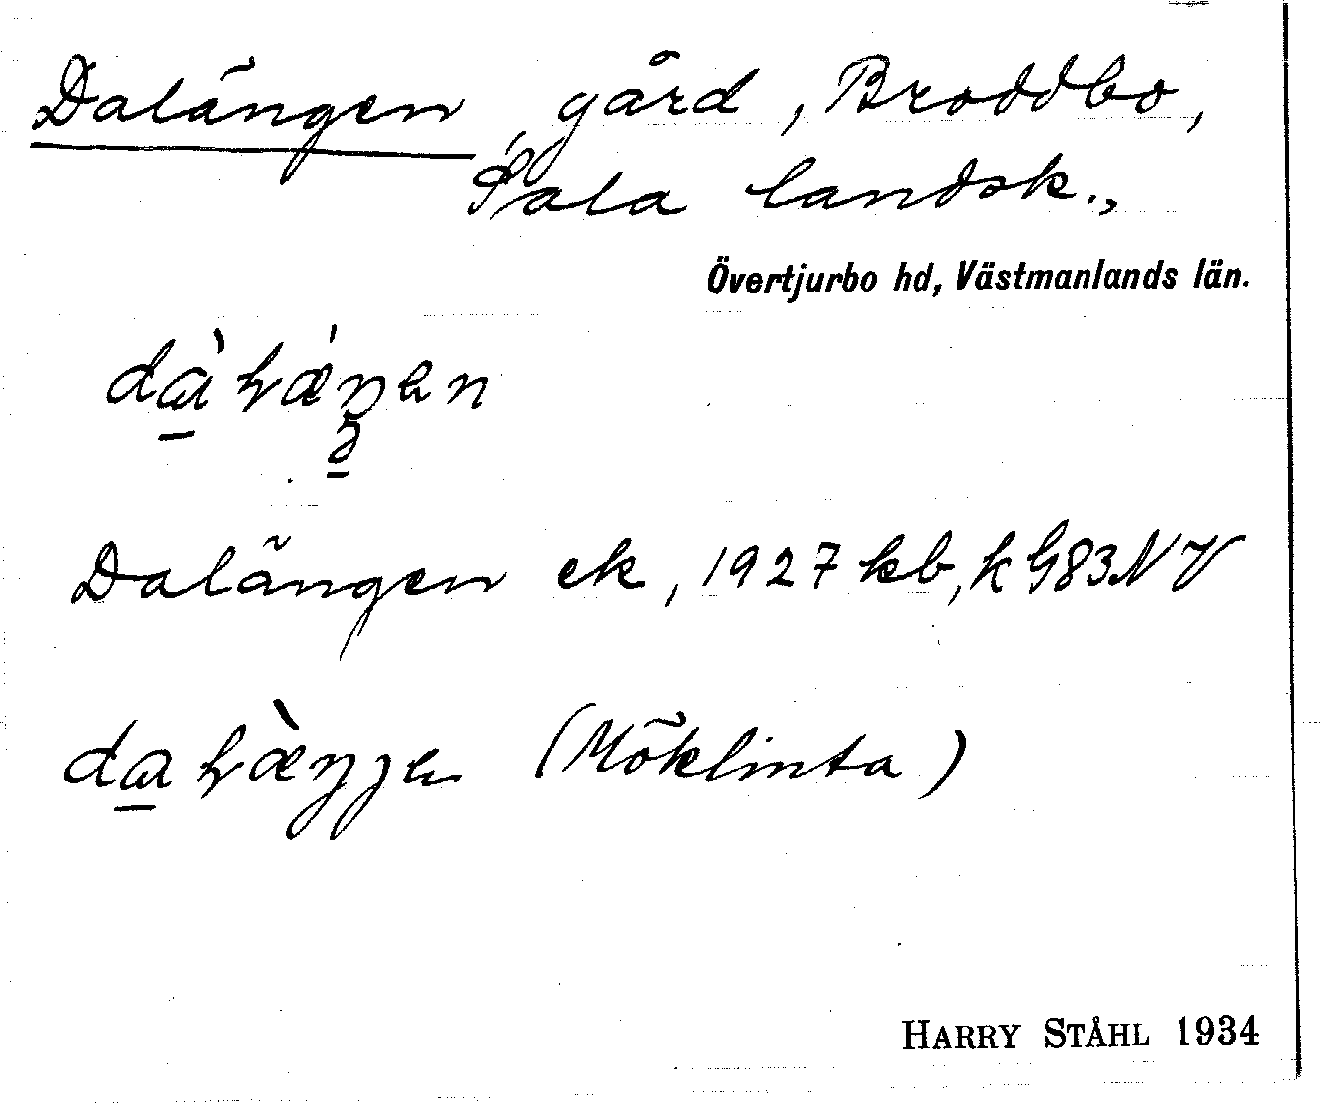 Dalängen, gård, Broddbo,
Sala landsk.,
Övertjurbo hd, Västmanlands län.
Dalängen ek, 1927 kb, k G83NV
(Möklinta)
HARRY STÅHL 1934